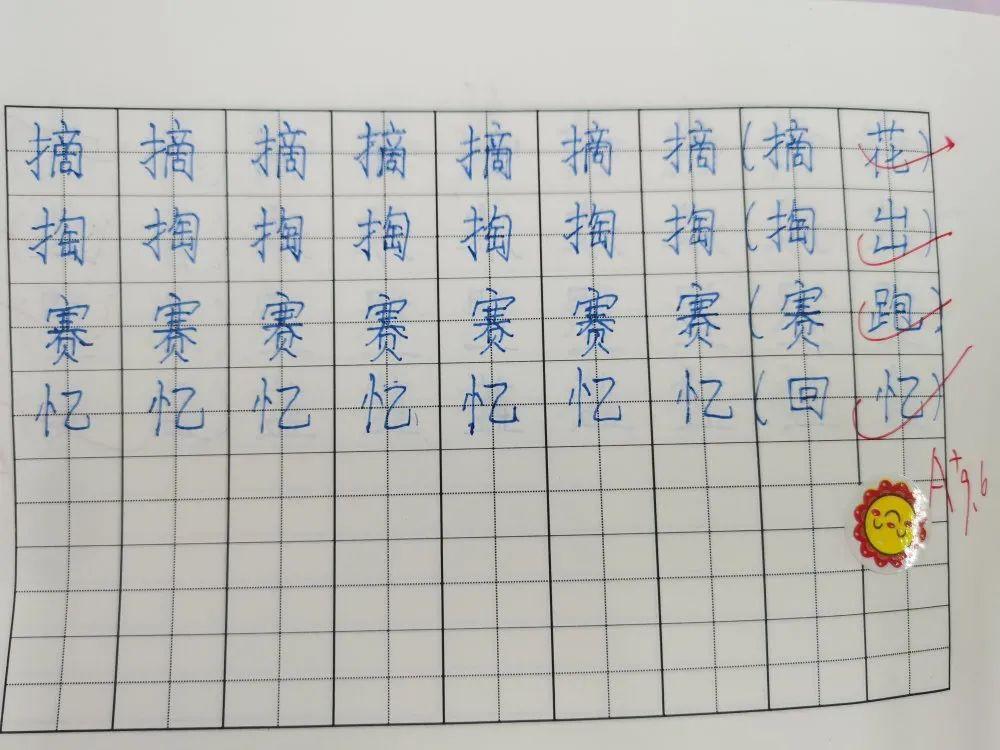 摘 摘 摘 摘 摘 摘 摘 (摘 花)
掏 掏 掏 掏 掏 掏 掏 (掏 出)
赛 赛 赛 赛 赛 赛 赛 (赛 跑)
忆 忆 忆 忆 忆 忆 忆 (回 忆)
A+ 9.6